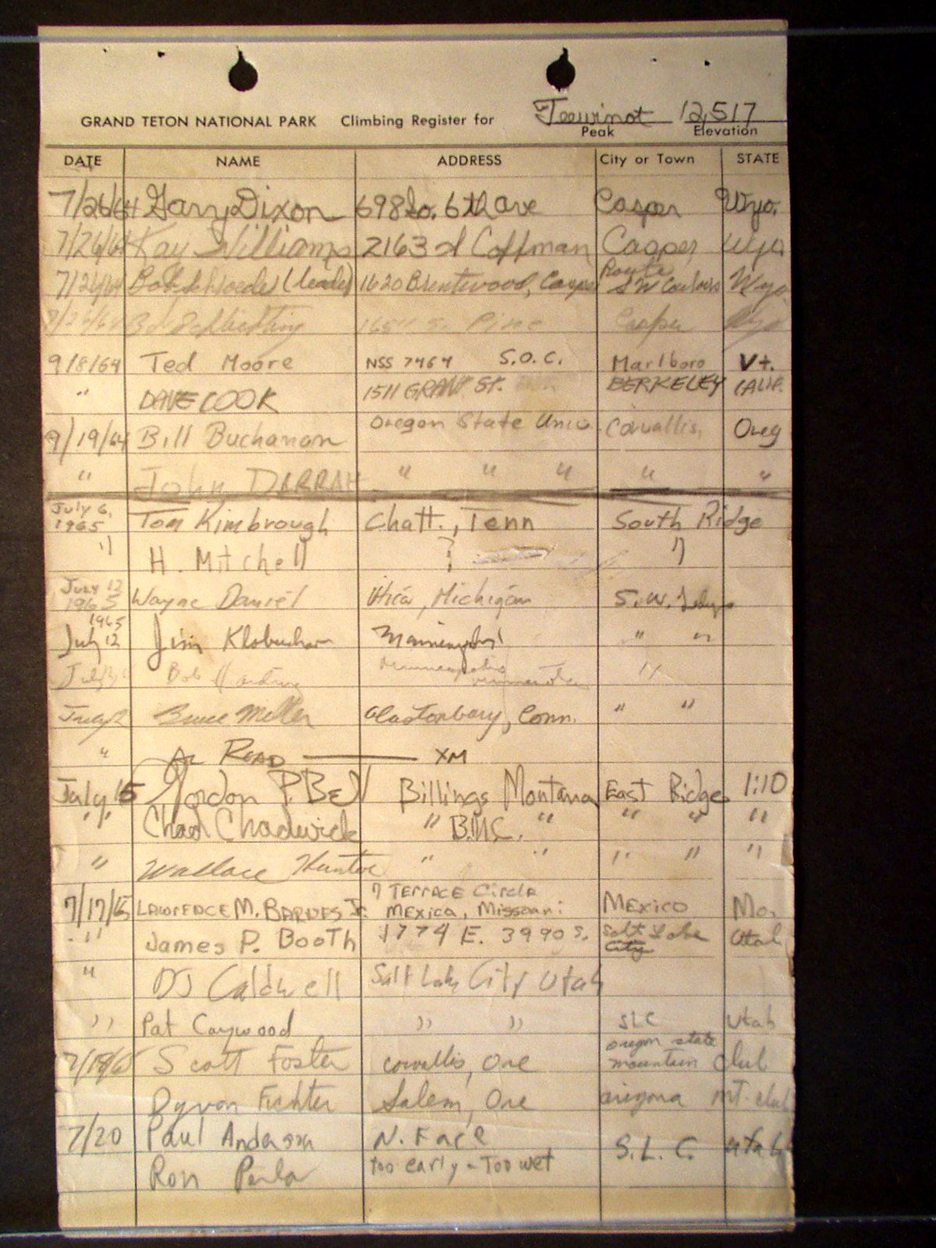 GRAND TETON NATIONAL PARK Climbing Register for Teewinot 12,517
Peak Elevation
DATE NAME ADDRESS City or Town STATE
7/26/64 Gary Dixon 698 So. 6th ave Casper Wyo.
7/26/64 Kay Williams 2163 Coffman Casper Wyo
7/26/64 (leader) 1620 Brentwood, Casper Route SW Wyo
7/26/64 Pine Casper
9/8/64 Ted Moore NSS 7464 S.O.C. Marlboro Vt.
" DAVE COOK 1511 GRANT St. BERKELEY CALIF.
9/19/64 Bill Buchanan Oregon State Univ. Corvallis, Oreg
" John DARRAH " " " " "
July 6, 1965 Tom Kimbrough Chatt., Tenn South Ridge
" H. Mitchell ? "
July 12 1965 Wayne Daniel Utica, Michigan S.W.
1965
July 12 Jim Klobuchar Minneapolis " "
Bob Harding Minneapolis Minnesota "
Bruce Miller Glastonbury, Conn. " "
" AL READ —— XM
July 15 Gordon P Bell Billings Montana East Ridge 1:10
" " Chad Chadwick " B.M.C. " " " "
" Wallace Hunter " " " " "
7/17/65 LAWRENCE M. BARNES Jr. 7 TERRACE Circle MEXICO, Missouri MEXICO Mo.
" James P. BooTh 1774 E. 3990 S. Salt Lake City Utah
" DJ Caldwell Salt Lake City Utah
" Pat Caywood " " SLC Utah
7/18/65 Scott Foster corvallis, Ore oregon state mountain club
Fichter Salem, Ore arizona mt. club
7/20 Paul Anderson N. Face S.L.C. Utah
Ron too early - Too wet